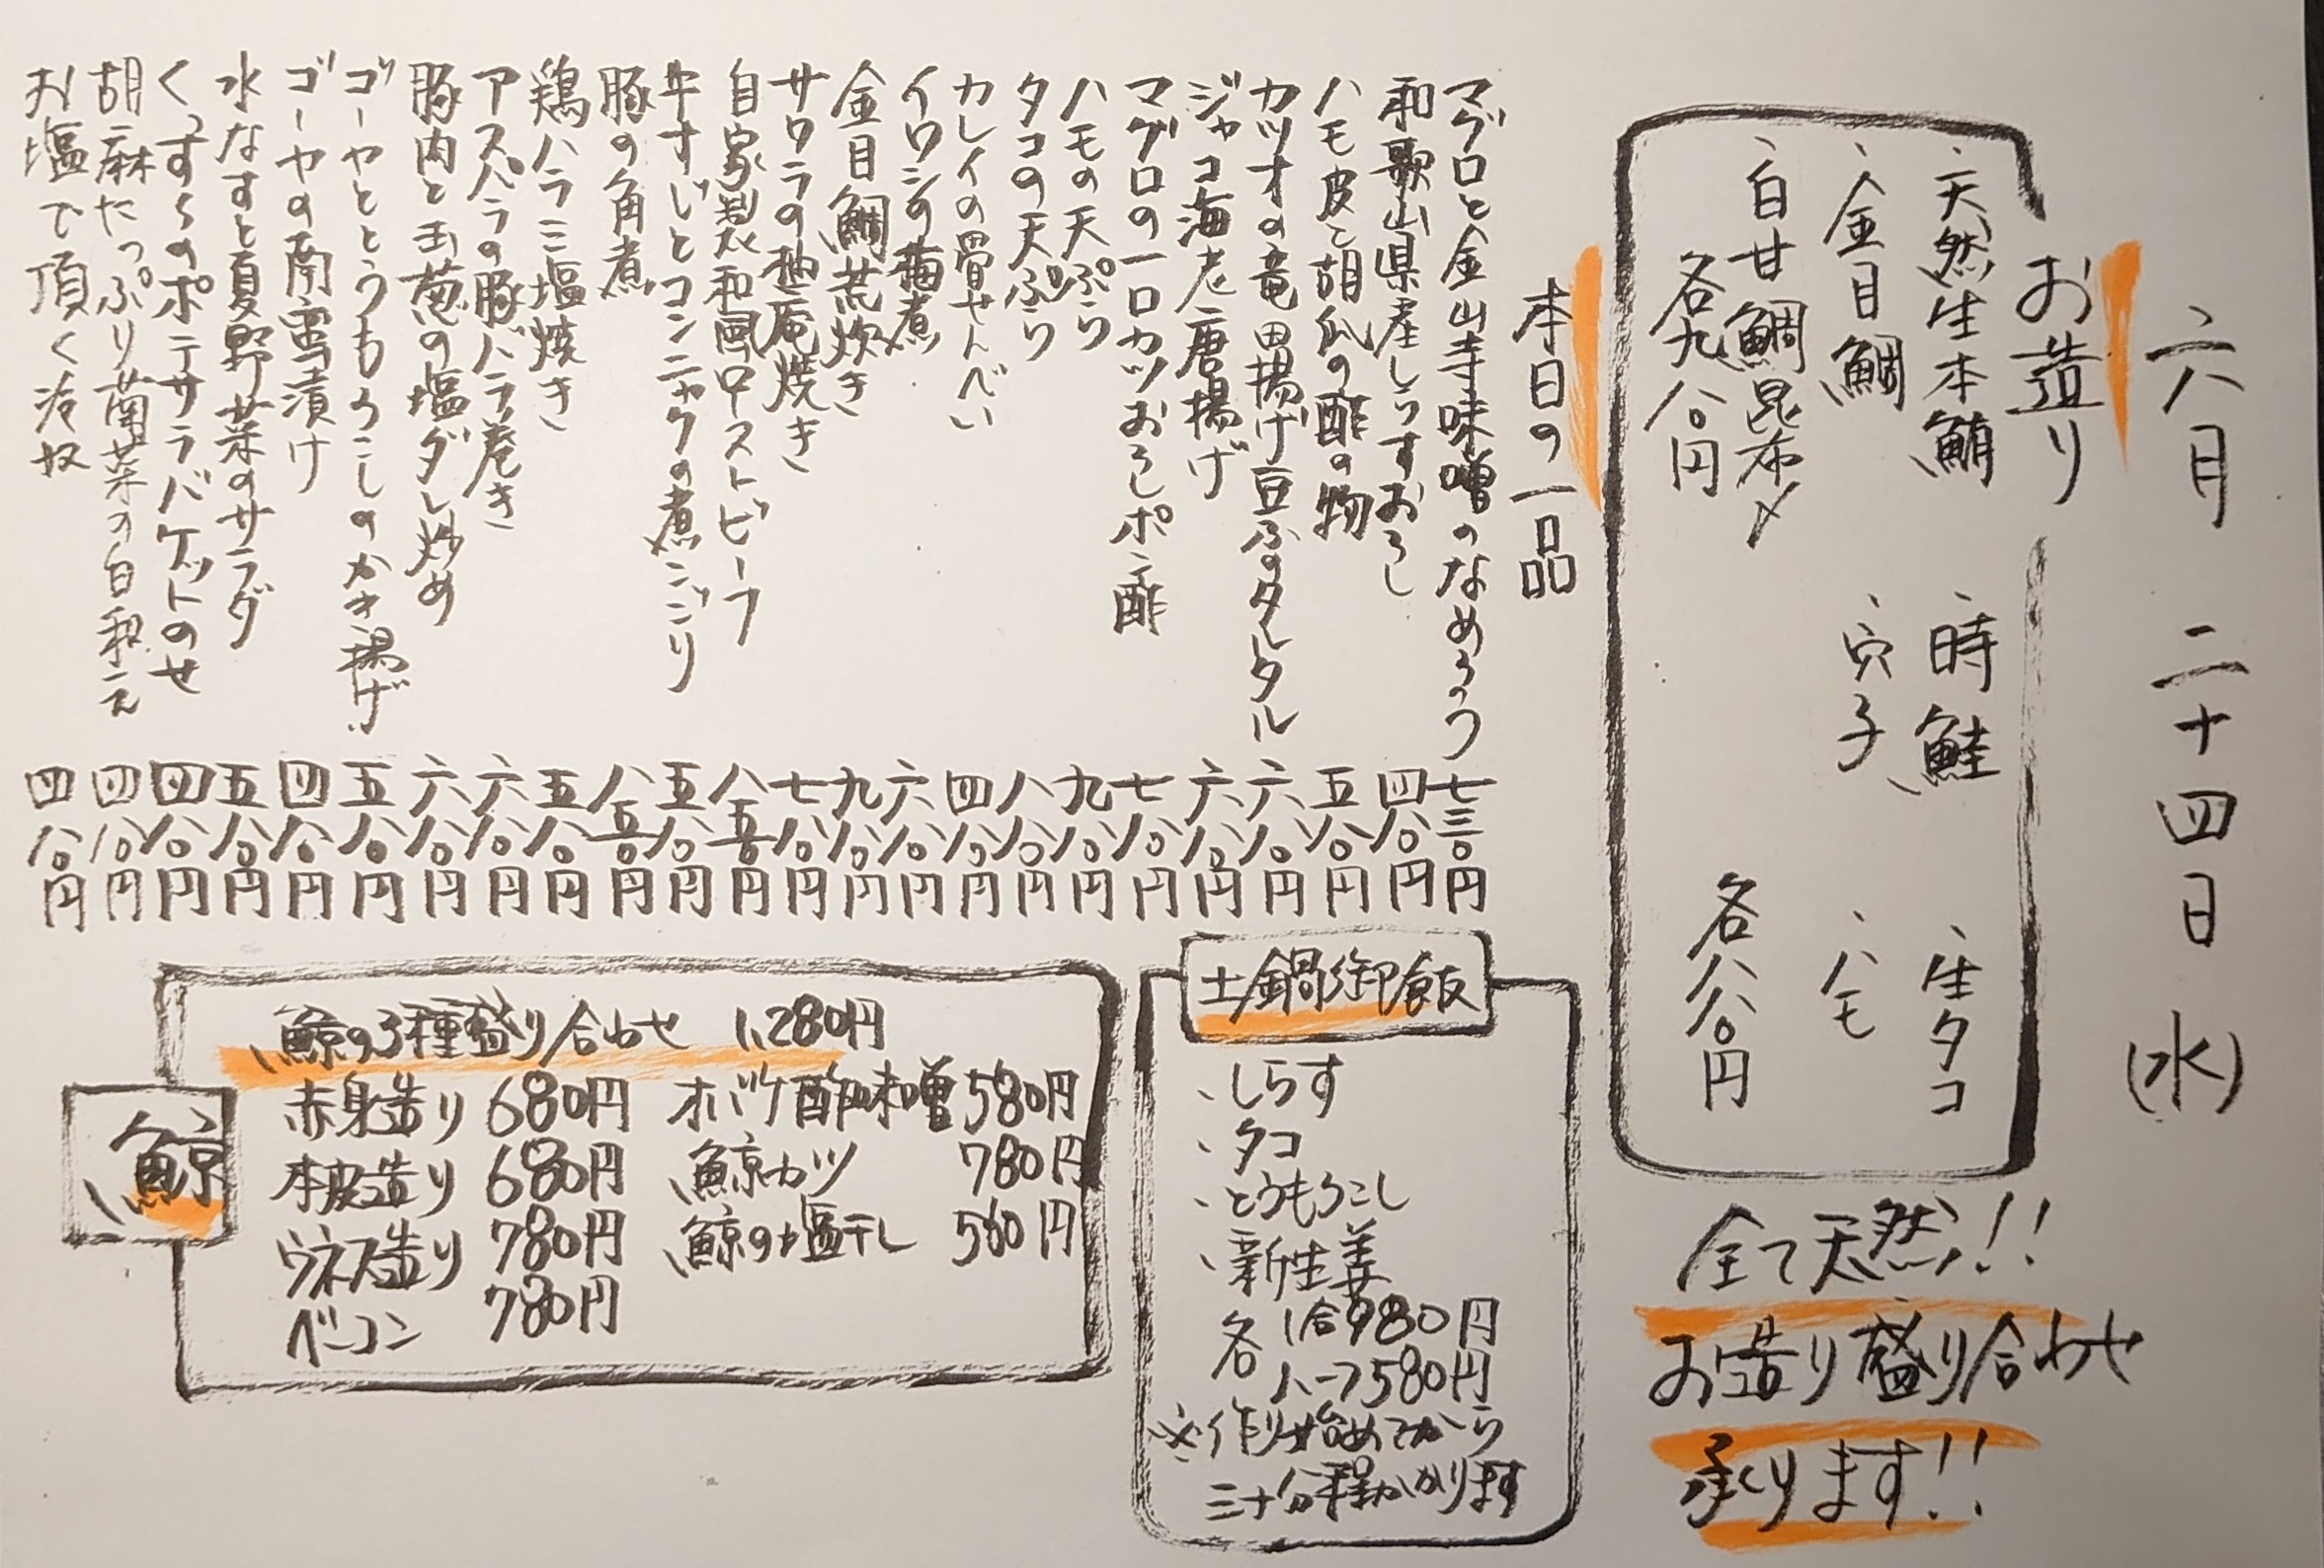 六月 二十四日 (水)
お造り
、天然生本鮪 、時鮭 、生タコ
、金目鯛 、穴子 、ハモ
、白甘鯛昆布〆
各九八〇円 各八八〇円
全て天然!!
お造り盛り合わせ
承ります!!
本日の一品
マグロと金山寺味噌のなめろう 七三〇円
和歌山県産しらすおろし 四八〇円
ハモ皮と胡瓜の酢の物 五八〇円
カツオの竜田揚げ豆ふのタルタル 六八〇円
ジャコ海老唐揚げ 六八〇円
マグロの一口カツおろしポン酢 七八〇円
ハモの天ぷら 九八〇円
タコの天ぷら 八八〇円
カレイの骨せんべい 四八〇円
イワシの梅煮 六八〇円
金目鯛荒炊き 九八〇円
サワラの柚庵焼き 七八〇円
自家製和風ローストビーフ 八五〇円
牛すじとコンニャクの煮こごり 五八〇円
豚の角煮 八五〇円
鶏ハラミ塩焼き 五八〇円
アスパラの豚バラ巻き 六八〇円
豚肉と玉葱の塩ダレ炒め 六八〇円
ゴーヤととうもろこしのかき揚げ 五八〇円
ゴーヤの南蛮漬け 四八〇円
水なすと夏野菜のサラダ 五八〇円
くんすくのポテサラバケットのせ 四八〇円
胡麻たっぷり菊菜の白和え 四八〇円
お塩で頂く冷奴 四八〇円
土鍋御飯
、しらす
、タコ
、とうもろこし
、新生姜
各 1合980円
ハーフ580円
※作り始めてから
三十分程かかります
鯨
鯨の3種盛り合わせ 1,280円
赤身造り 680円 オバケ酢味噌 580円
本皮造り 680円 鯨カツ 780円
ウネス造り 780円 鯨の塩干し 560円
ベーコン 780円